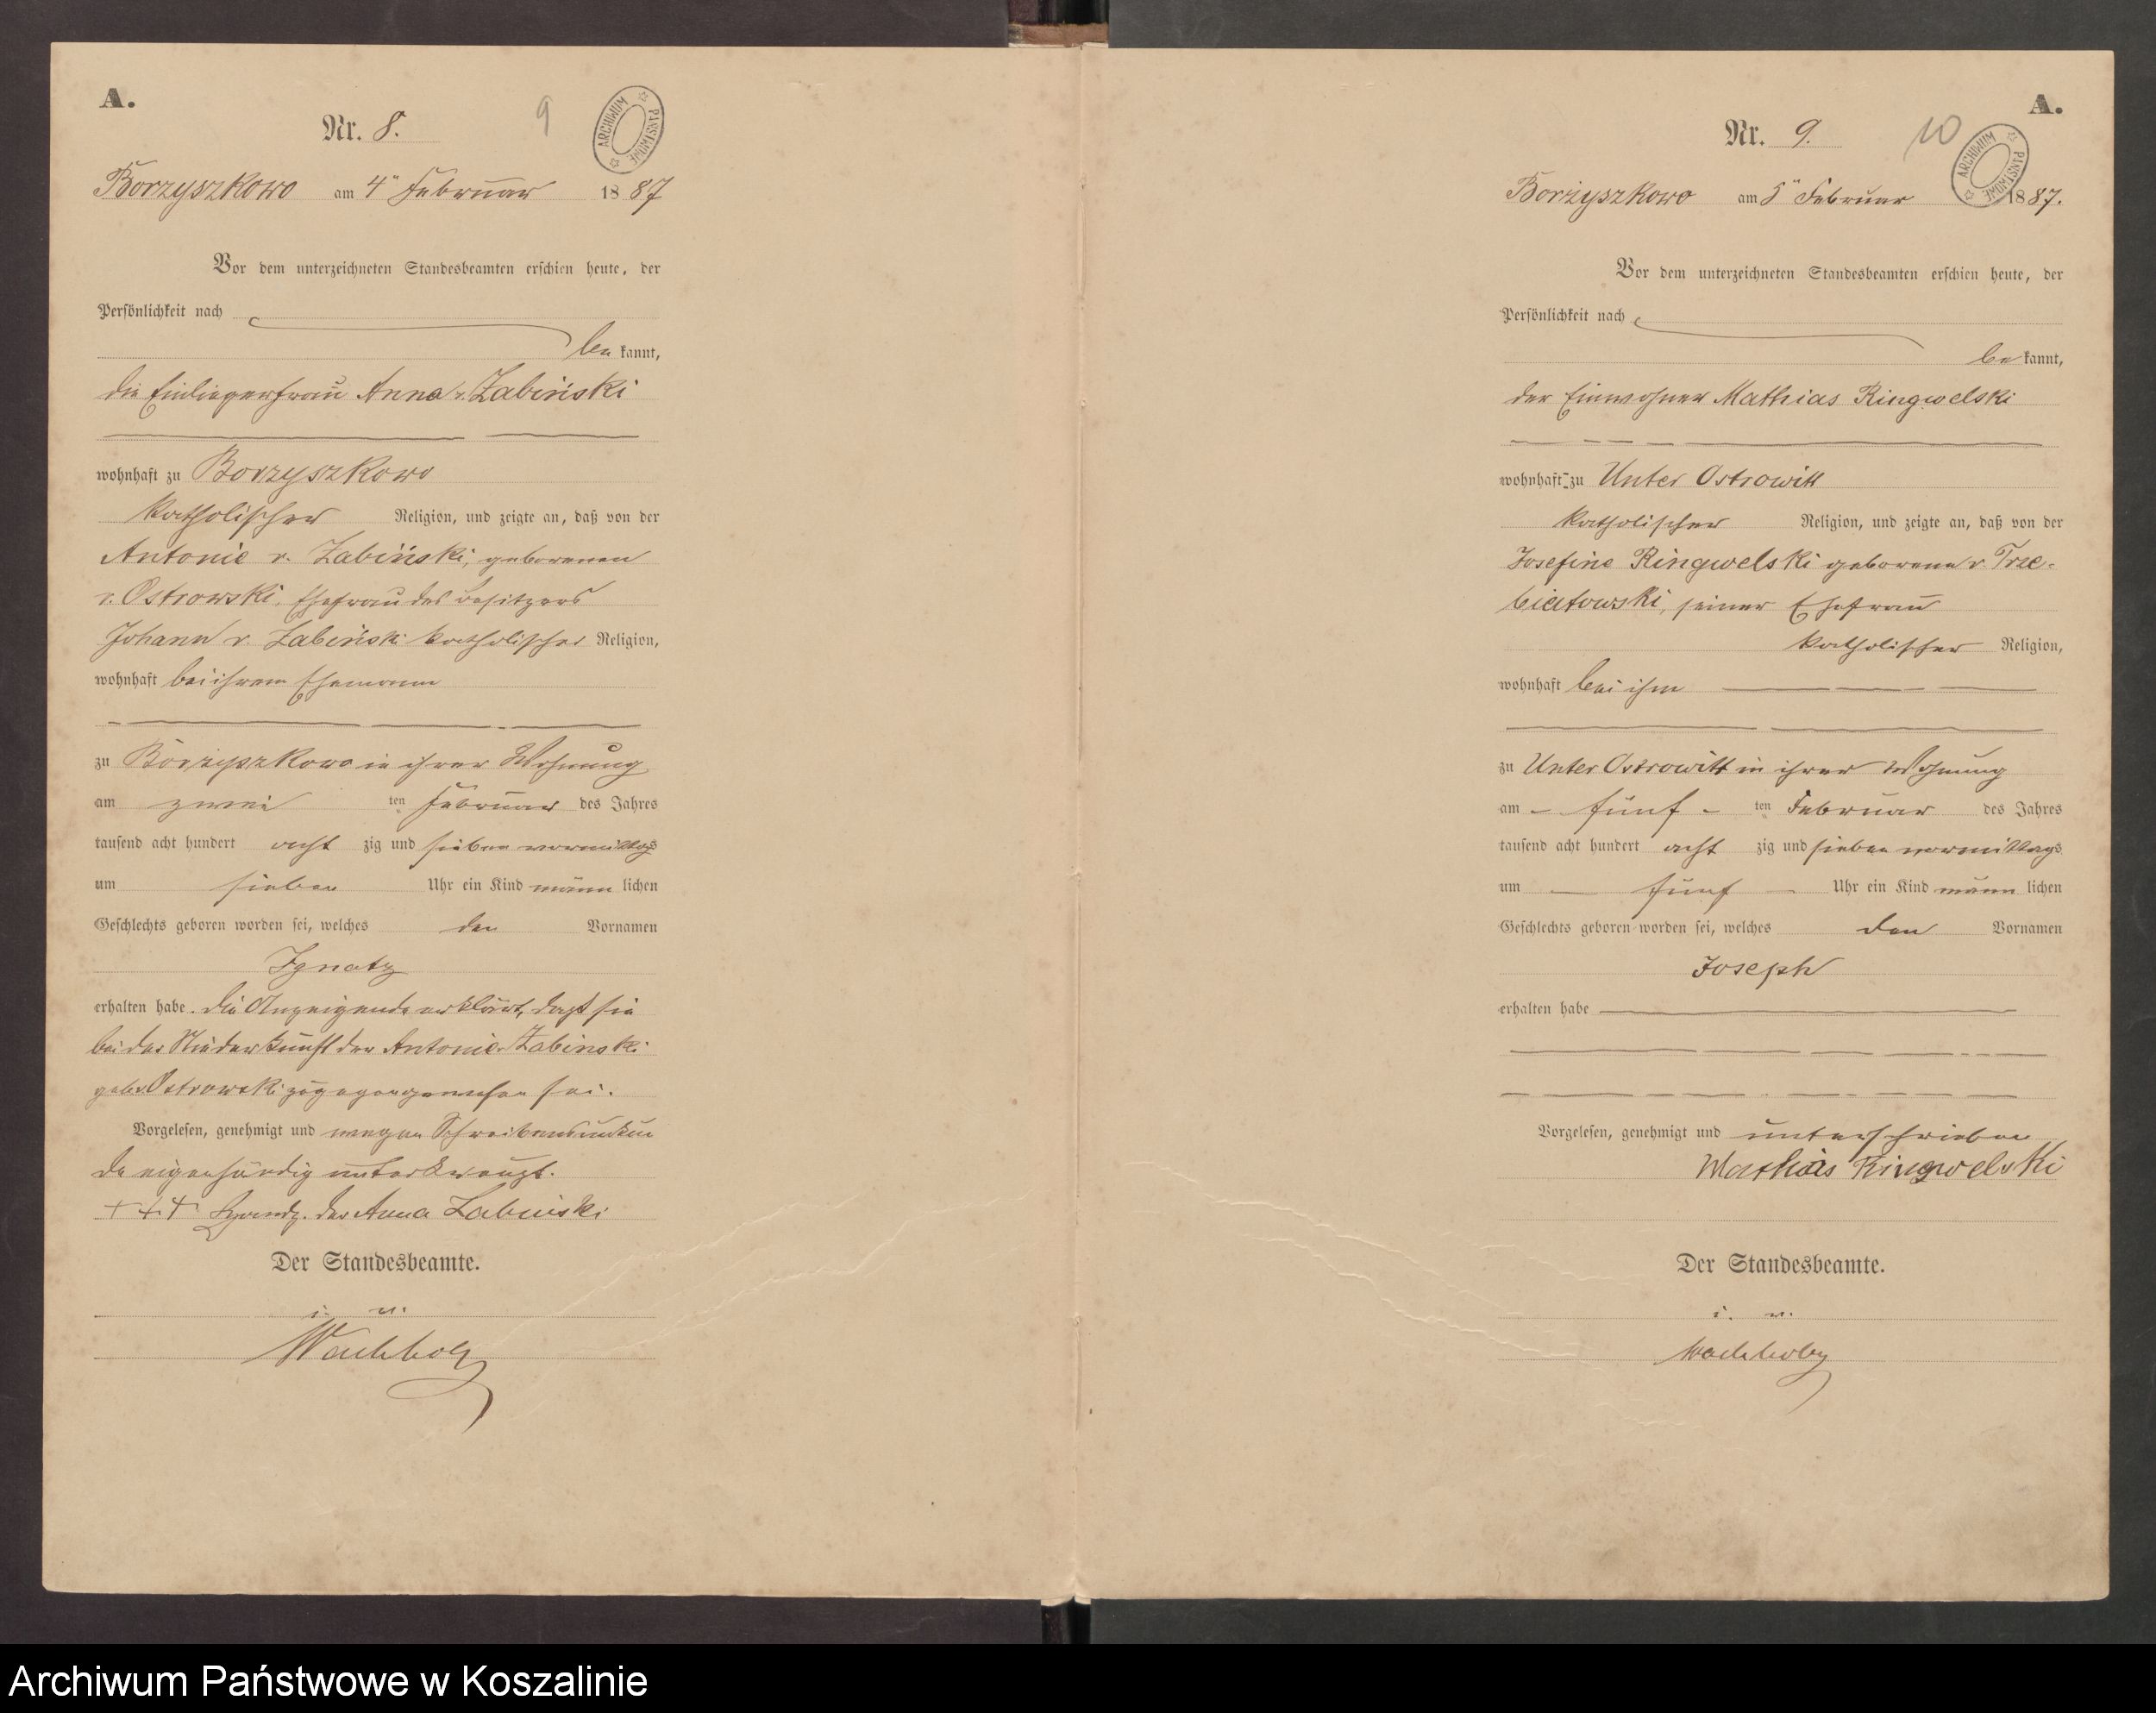 A.
Nr. 8.
9
ARCHIWUM PAŃSTWOWE
Borzyszkowo am 4" Februar 1887
Vor dem unterzeichneten Standesbeamten erschien heute, der
Persönlichkeit nach
be kannt,
die Einliegerfrau Anna v. Zabiński
wohnhaft zu Borzyszkowo
katholischer Religion, und zeigte an, daß von der
Antonie v. Zabiński, geborenen
v. Ostrowski, Ehefrau des Besitzers
Johann v. Zabiński katholischer Religion,
wohnhaft bei ihrem Ehemann
zu Borzyszkowo in ihrer Wohnung
am zwei ten Februar des Jahres
tausend acht hundert acht zig und sieben vormittags
um sieben Uhr ein Kind männ lichen
Geschlechts geboren worden sei, welches den Vornamen
Ignatz
erhalten habe. Die Anzeigende erklärt, daß sie
bei der Niederkunft der Antonie v. Zabinski
geb. v. Ostrowski zugegen gewesen sei.
Vorgelesen, genehmigt und wegen Schreibensunkun
de eigenhändig unterkreuzt.
+++ Handz. der Anna Zabinski
Der Standesbeamte.
i. v.
Wachholz
A.
Nr. 9.
10
ARCHIWUM PAŃSTWOWE
Borzyszkowo am 5" Februar 1887.
Vor dem unterzeichneten Standesbeamten erschien heute, der
Persönlichkeit nach
be kannt,
der Einwohner Mathias Ringwelski
wohnhaft zu Unter Ostrowitt
katholischer Religion, und zeigte an, daß von der
Josefine Ringwelski geborene v. Trze-
biatowski, seiner Ehefrau
katholischer Religion,
wohnhaft bei ihm
zu Unter Ostrowitt in ihrer Wohnung
am - fünf - ten Februar des Jahres
tausend acht hundert acht zig und sieben vormittags
um fünf Uhr ein Kind männ lichen
Geschlechts geboren worden sei, welches den Vornamen
Joseph
erhalten habe
Vorgelesen, genehmigt und unterschrieben
Mathias Ringwelski
Der Standesbeamte.
i. v.
Wachholz
Archiwum Państwowe w Koszalinie